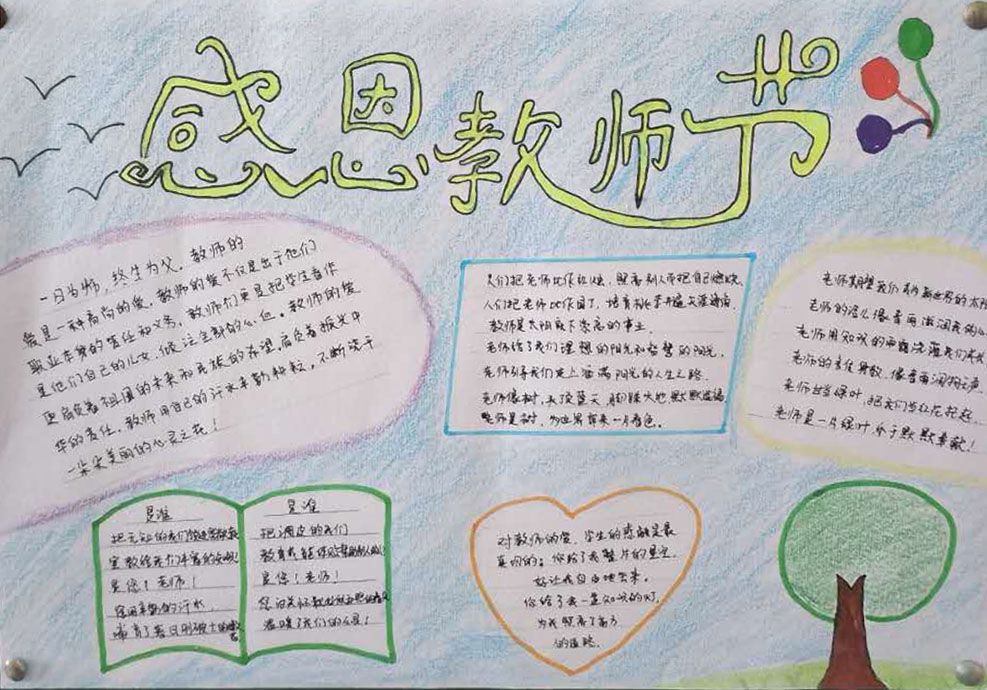 感恩教师节
一日为师，终生为父。教师的
爱是一种高尚的爱，教师的爱不仅是出于他们
职业本身的责任和义务，教师们更是把学生看作
是他们自己的儿女，倾注全部的心血。教师的爱
更肩负着祖国的未来和民族的希望，肩负着振兴中
华的责任。教师用自己的汗水辛勤耕耘，不断浇于
一朵朵美丽的心灵之花！
人们把老师比作红烛，照亮别人而把自己燃烧，
人们把老师比作园丁，培育桃李开遍天涯海角
教师是太阳底下崇高的事业
老师给了我们理想的阳光和智慧的阳光，
老师引导我们走上洒满阳光的人生之路，
老师像树，头顶蓝天 脚踩大地默默
老师是树，为世界带来一片春色。
老师期望我们 新世界的太阳
老师用知识的 浇灌我们
老师的 像春雨润物无声
老师甘当绿叶，把我们当红花托起
老师是一片绿叶 默默奉献！
是谁
把无知的我们领进
宣 给我们丰富的
是您！老师！
您用辛勤的汗水，
哺育了春日刚
是谁
把调皮的我们
教育成
是您！老师！
您的关怀
温暖了我们的心灵！
对教师的爱，学生的感触是最
真切的：您给了我整片的星空
好让我自由地去来。
你给了我一盏知识的灯，
为我照亮了前方
的道路。